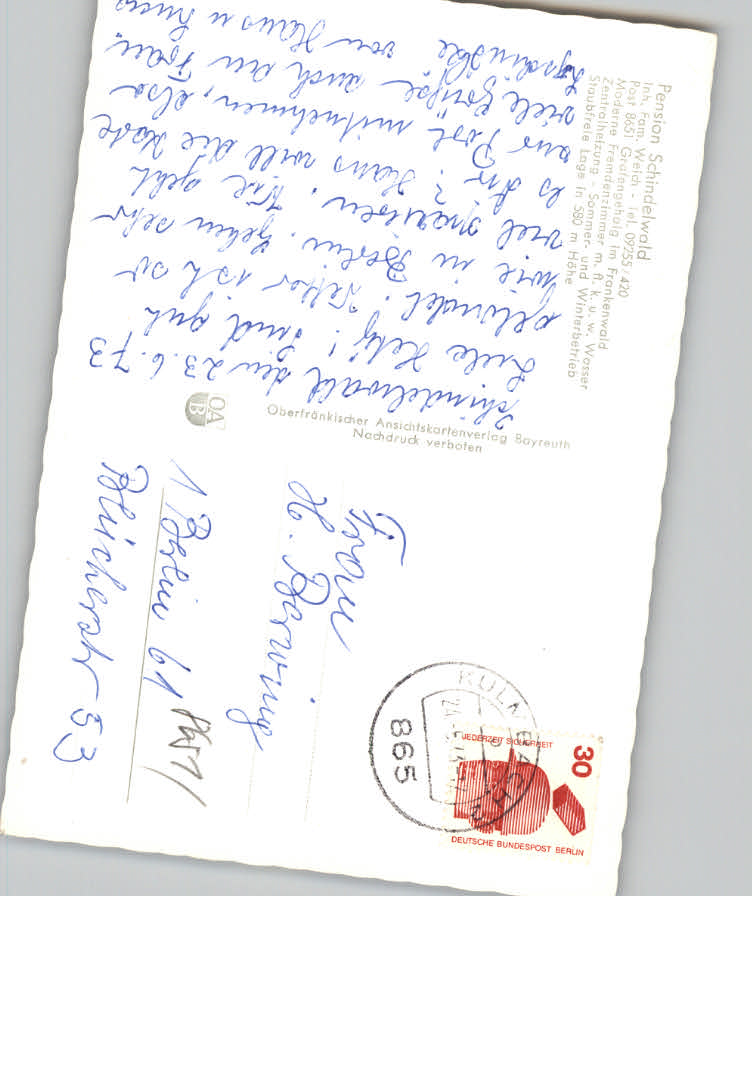 Pension Schindelwald
Inh. Fam. Weich - Tel. 09255/420
Post 8651 Grafengehaig im Frankenwald
Moderne Fremdenzimmer m. fl. k. u. w. Wasser
Zentralheizung - Sommer- und Winterbetrieb
Staubfreie Lage in 580 m Höhe
Schindelwald den 23.6.73
Liebe Hety! Sind gut
gelandet. Wetter ist so
wie in Berlin. Gehen sehr
viel spazieren. Wie geht
es dir? Hans will die Karte
zur Post mitnehmen, also
viele Grüße auch an Frau
von Hans u
Oberfränkischer Ansichtskartenverlag Bayreuth
Nachdruck verboten
OA
B
Frau
H. Berning
1 Berlin 61
Blücherstr 53
KULMBACH
865
JEDERZEIT SICHERHEIT
30
DEUTSCHE BUNDESPOST BERLIN